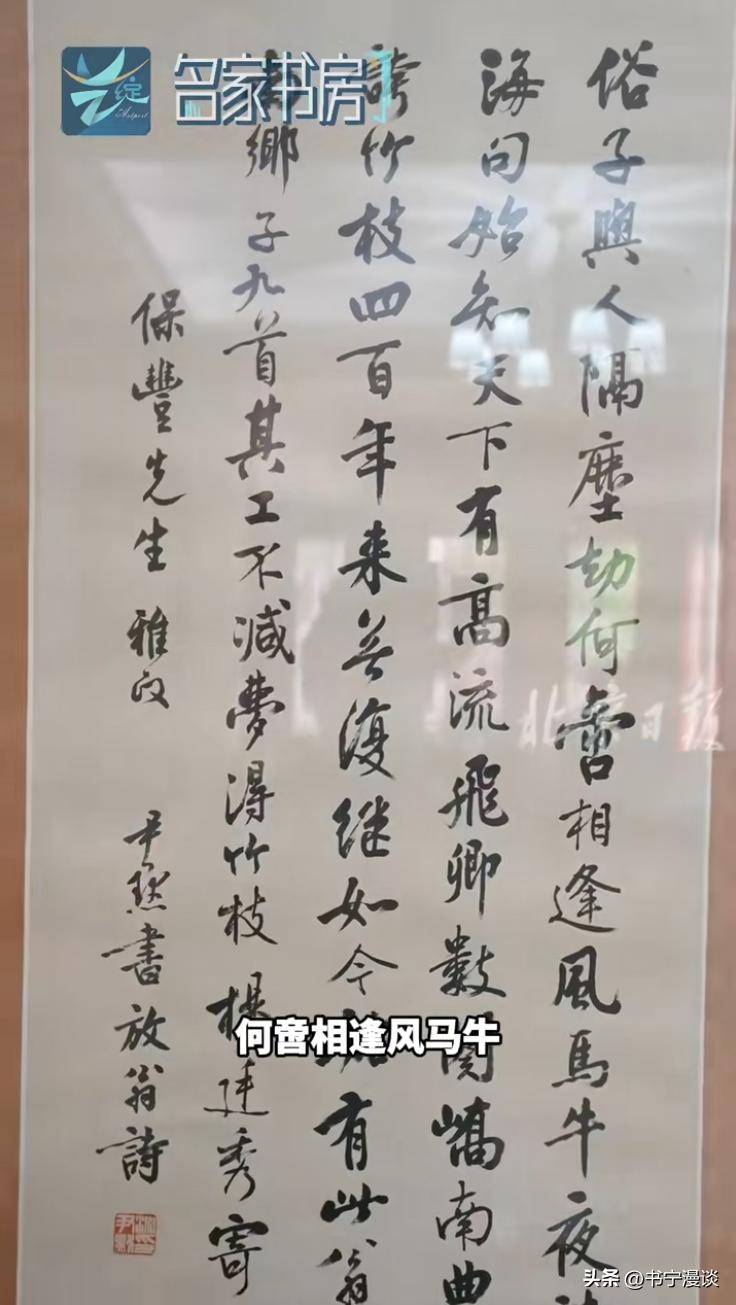 名家书房
俗子與人隔塵劫何啻相逢風馬牛夜
海句始知天下有高流飛卿數闋嶠南曲
誇竹枝四百年来無復継如今有此翁
鄉子九首其工不減夢得竹枝 楊廷秀寄
保豐先生 雅政
尹默書放翁詩
北京日报
何啻相逢风马牛
头条 @书宁漫谈